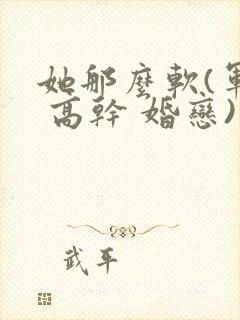 她那麼軟(軍
高幹 婚戀)
武平